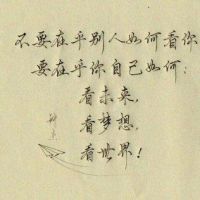 不要在乎别人如何看你
要在乎你自己如何:
看未来,
看梦想,
看世界!